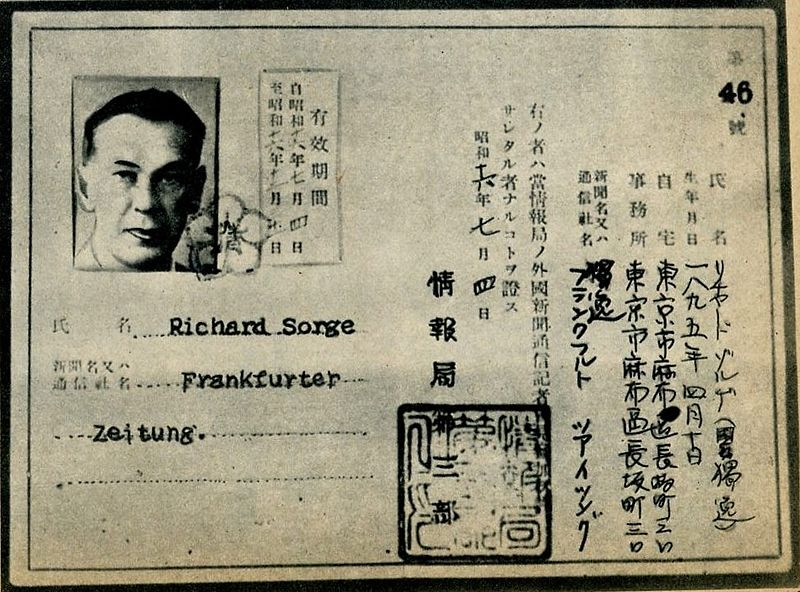 第
46.
號
氏名 リチャード ゾルゲ(國獨逸)
生年月日 一八九五年四月十日
自宅 東京市麻布區長坂町三〇
事務所 東京市麻布區長坂町三〇
新聞名又ハ
通信社名
獨逸
フランクフルト ツァイツング
右ノ者ハ當情報局ノ外國新聞通信記者
サレタル者ナルコトヲ證ス
昭和十六年七月四日
情報局
第三部
有效期間
自昭和十六年七月四日
至昭和十六年
氏名 Richard Sorge
新聞名又ハ
通信社名 Frankfurter
Zeitung.